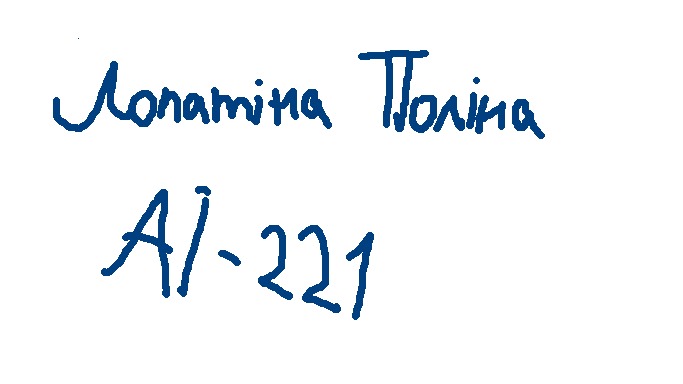 Лопатіна Поліна
АІ-221